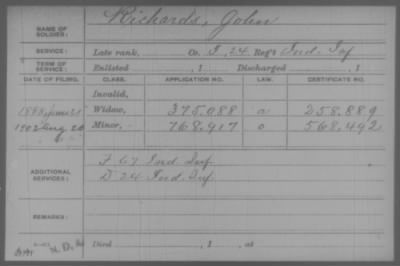 NAME OF SOLDIER: Richards, John
SERVICE: Late rank, Co. I, 24 Reg't Ind. Inf
TERM OF SERVICE: Enlisted , 1 Discharged , 1
DATE OF FILING. CLASS. APPLICATION NO. LAW. CERTIFICATE NO.
Invalid,
1888 Widow, 375.088 a 258.889
1902 Aug 20 Minor, 768.917 o 568.492
ADDITIONAL SERVICES: F 67 Ind. Inf.
D 24 Ind. Inf.
REMARKS:
Died , 1 , at